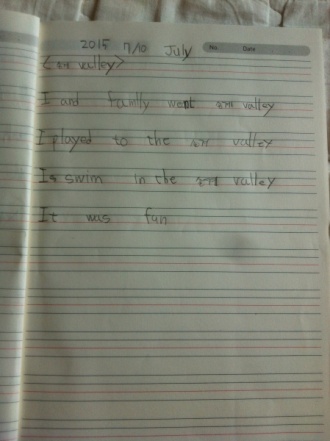 2015 7/10 July
No. Date
< valley>
I and family went valley
I played to the valley
Is swim in the valley
It was fun